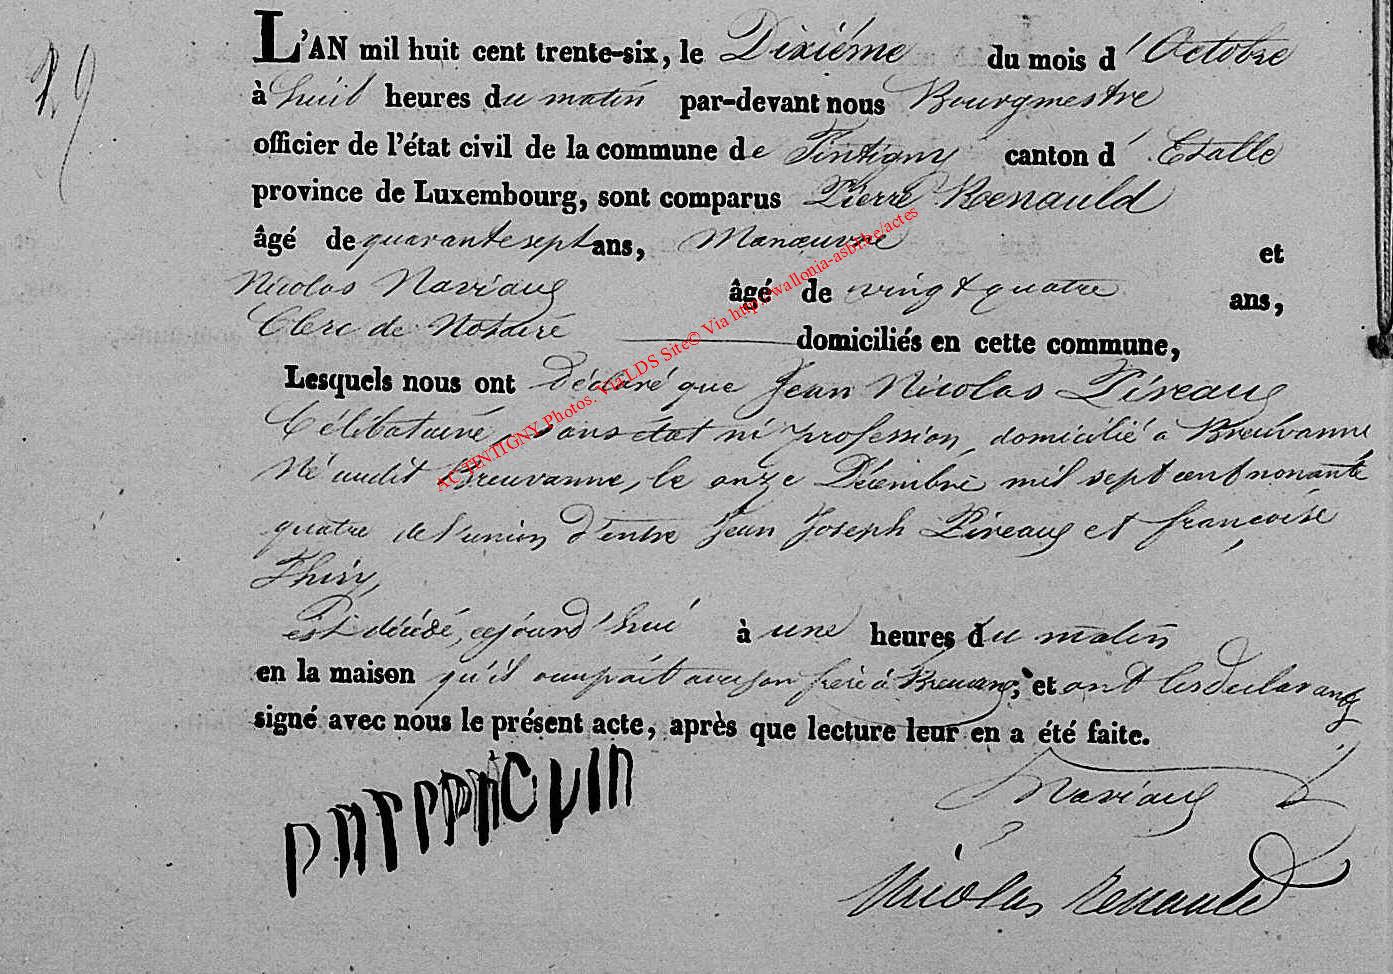 29
L'AN mil huit cent trente-six, le Dixiéme du mois d'Octobre
à huit heures du matin par-devant nous Bourgmestre
officier de l'état civil de la commune de Tintigny canton d'Etalle
province de Luxembourg, sont comparus Pierre Renauld
âgé de quarante sept ans, Manœuvre et
Nicolas Naviaux âgé de vingt quatre ans,
Clerc de Notaire domiciliés en cette commune,
Lesquels nous ont Déclaré que Jean Nicolas Pireaux
Célibataire, sans état ni profession, domicilié à Breuvanne
Né audit Breuvanne, le onze Décembre mil sept cent nonante
quatre de l'union d'entre Jean Joseph Pireaux et françoise
Thiry,
est décédé, cejourd'hui à une heures du matin
en la maison qu'il occupait avec son frère à Breuvanne; et ont les déclarants
signé avec nous le présent acte, après que lecture leur en a été faite.
Naviaux
Nicolas Renauld
AC TINTIGNY Photos. Via LDS Site© Via http://wallonia-asbl.be/actes